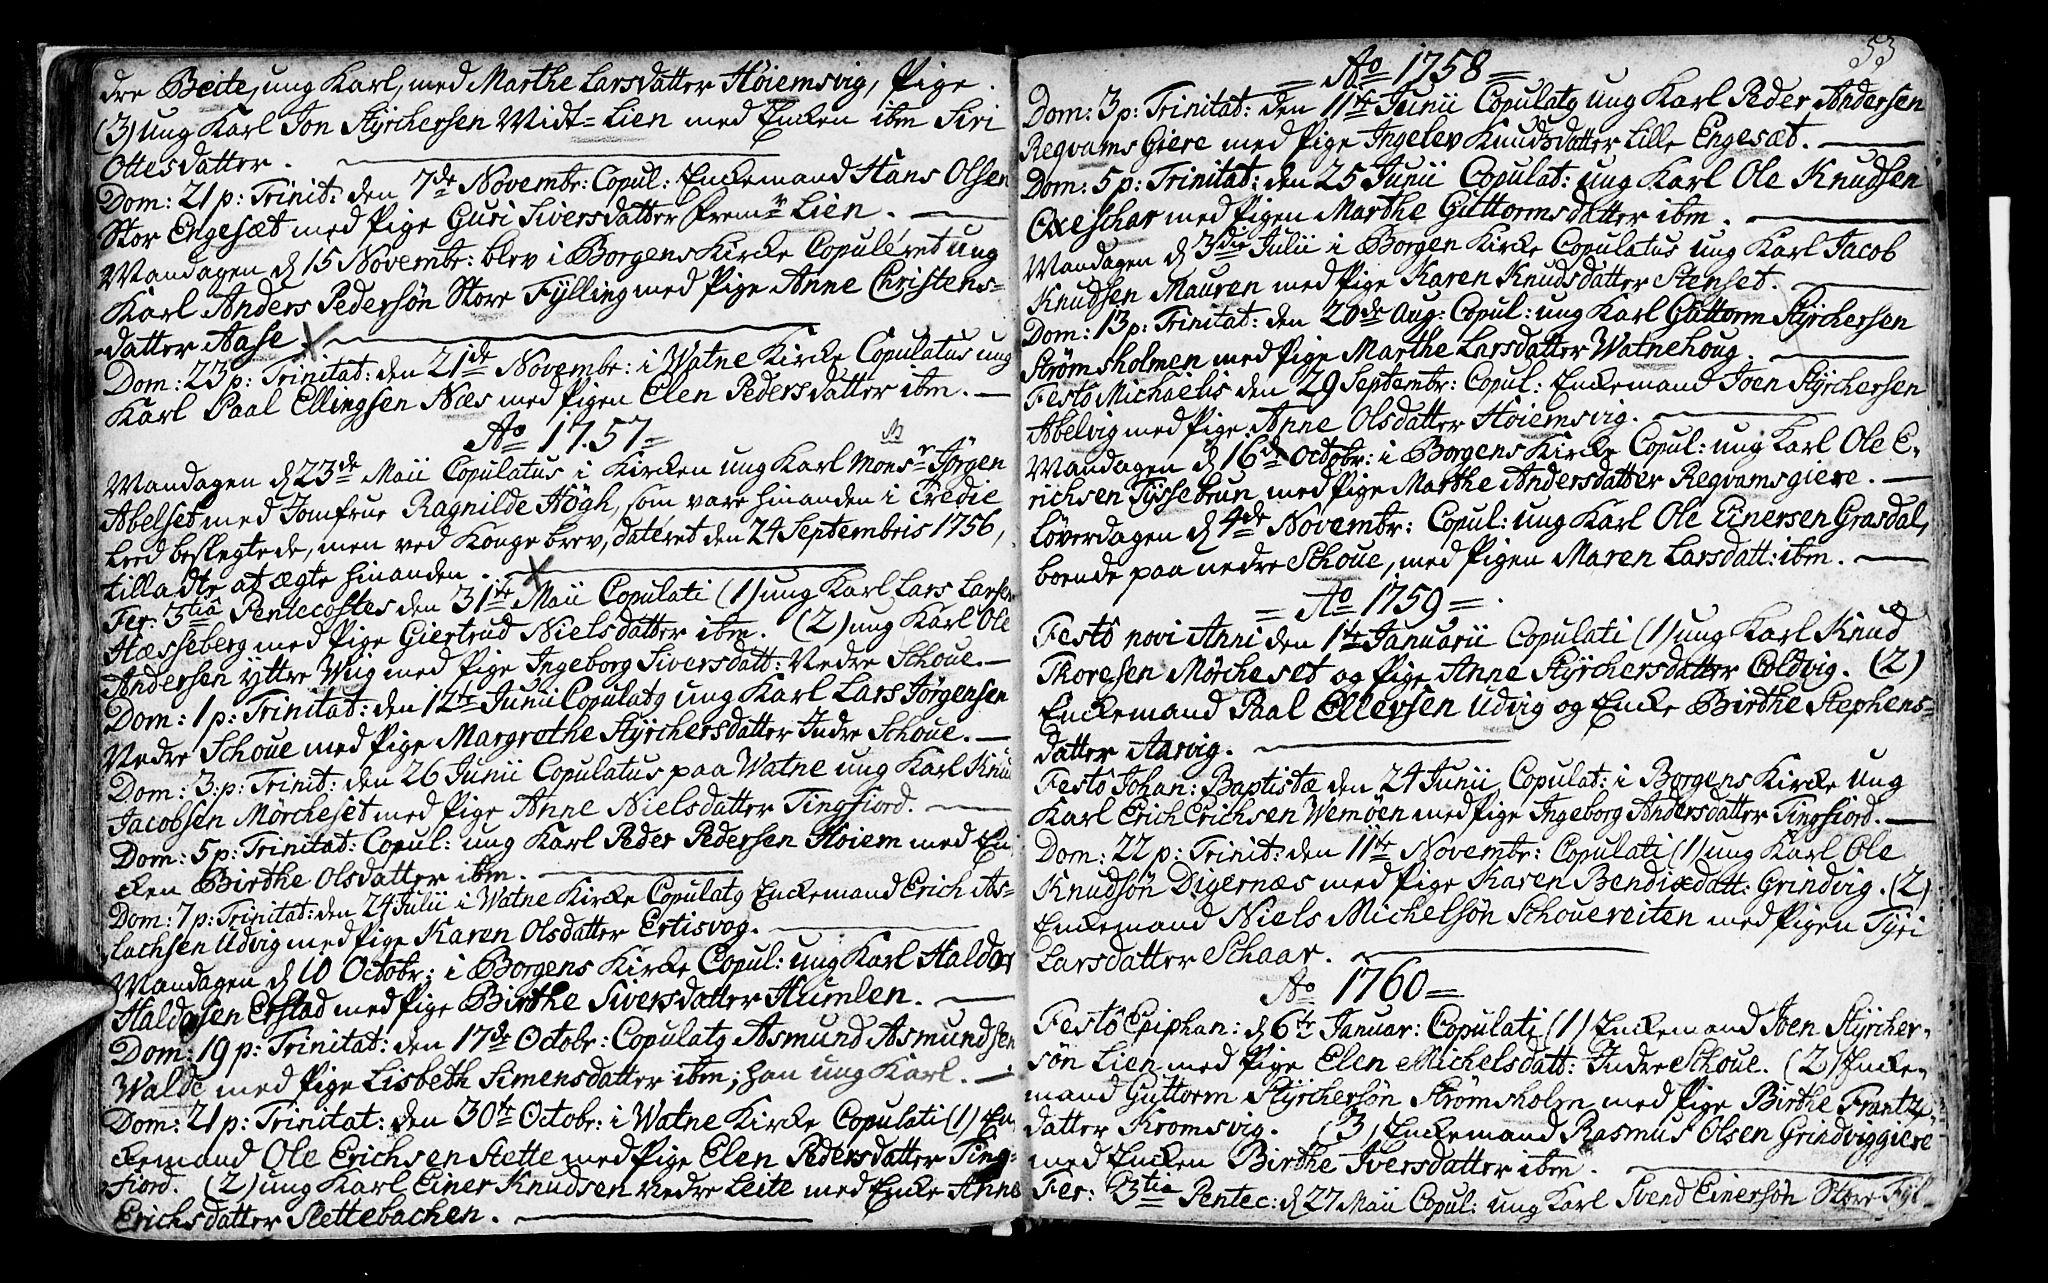 dre Beite, ung Karl, med Marthe Larsdatter Høiemsvig, Pige.
(3) ung Karl Jon Styrchersen Widt=Lien med Encken ibm Siri
Ottesdatter.
Dom: 21 p: Trinit: den 7de Novembr: Copul: Enckemand Hans Olsen
Stor Engesæt med Pige Guri Siversdatter Frem Lien.
Mandagen d 15 Novembr: blev i Borgens Kircke Copuléret ung
Karl Anders Pedersøn Store Fylling med Pige Anne Christens=
datter Aase
Dom: 23 p: Trinitat: den 21de Novembr: i Watne Kircke Copulatus ung
Karl Paal Ellingsen Næs med Pigen Elen Pedersdatter ibm.
Ao 1757=
Mandagen d 23de Maii Copulatus i Kircken ung Karl Monsr Jørgen
Abelset med Jomfrue Ragnilde Høgh, som vare hinanden i Tredie
Leed beslegtede, men ved Konge brev, dateret den 24 Septembris 1756,
tilladtes at ægte hinanden.
Fer: 3tia Pentecostes den 31te Maii Copulati (1) ung Karl Lars Larsen
Hæsseberg med Pige Giertrud Nielsdatter ibm. (2) ung Karl Ole
Andersen yttre Wiig med Pige Ingeborg Siversdatt: Nedre Schoue.
Dom: 1 p: Trinitat: den 12te Junii Copulatg ung Karl Lars Jørgensen
Nedre Schoue med Pige Margrethe Styrchersdatter Indre Schoue.
Dom: 3: p: Trinit: den 26 Junii Copulatus paa Watne ung Karl Knud
Jacobsen Mørcheset med Pige Anne Nielsdatter Tingfiord.
Dom: 5 p: Trinitat: Copul: ung Karl Peder Pedersen Høiem med En
cken Birthe Olsdatter ibm.
Dom: 7 p: Trinitat: den 24 Julii i Watne Kircke Copulatg Enckemand Erich As=
lachsen Udvig med Pige Karen Olsdatter Ertisvog.
Mandagen d 10 Octobr: i Borgens Kircke Copul: ung Karl Haldor
Haldorsen Erstad med Pige Birthe Siversdatter Humlen.
Dom: 19 p: Trinitat: den 17de Octobr: Copulatg Asmund Asmundsen
Walde med Pige Lisbeth Simensdatter ibm; han ung Karl.
Dom: 21 p: Trinitat: den 30te Octobr: i Watne Kircke Copulati (1) En
ckemand Ole Erichsen Stette med Pige Elen Pedersdatter Ting=
fiord. (2) ung Karl Einer Knudsen Nedre Leite med Encke Anne
Erichsdatter Slettebachen.
53
= Ao 1758 =
Dom: 3 p: Trinitat: den 11te Junii Copulatg ung Karl Peder Andersen
Reqvams Giere med Pige Ingelev Knudsdatter Lille Engesæt.
Dom: 5 p: Trinitat: den 25 Junii Copulat: ung Karl Ole Knudsen
Oxeschar med Pigen Marthe Guttormsdatter ibm.
Mandagen d 3die Julii i Borgen Kircke Copulatus ung Karl Jacob
Knudsen Mauren med Pige Karen Knudsdatter Stenset.
Dom: 13 p: Trinitat: den 20de Aug: Copul: ung Karl Guttorm Styrchersen
Strømsholmen med Pige Marthe Larsdatter Watnehoug.
Festo Michaelis den 29 Septembr: Copul: Enckemand Joen Styrchersen
Abelvig med Pige Anne Olsdatter Høiemsvig.
Mandagen d 16de Octobr: i Borgens Kircke Copul: ung Karl Ole E=
richsen Tyssebrun med Pige Marthe Andersdatter Reqvamsgiere.
Løverdagen d 4de Novembr: Copul: ung Karl Ole Einersen Grasdal,
boende paa nedre Schoue, med Pigen Maren Larsdatt: ibm.
= Ao 1759 =
Festo novi Anni den 1te Januarii Copulati (1) ung Karl Knud
Thoresen Mørcheset og Pige Anne Styrchersdatter Coldvig. (2)
Enckemand Paal Ellevsen Udvig og Encke Birthe Stephens=
datter Aarvig.
Festo Johan: Baptistæ den 24 Junii Copulat: i Borgens Kircke ung
Karl Erich Erichsen Wemøen med Pige Ingeborg Andersdatter Tingfiord.
Dom: 22 p: Trinit: den 11te Novembr: Copulati (1) ung Karl Ole
Knudsøn Digernæs med Pige Karen Bendixdatt: Grindvig. (2)
Enckemand Niels Michelsøn Schouereiten med Pigen Tyri
Larsdatter Schaar.
Ao 1760=
Festo Epiphan: d 6te Januar: Copulati (1) Enckemand Joen Styrcher=
søn Lien med Pige Elen Michelsdatt: Indre Schoue. (2) Encke=
mand Guttorm Styrchersøn Strømsholm med Pige Birthe Frantz
datter Kromsvig. (3) Enckemand Rasmus Olsen Grindviggiere
med Encken Birthe Iversdatter ibm.
Fer: 3tia Pentec: d 27 Maii Copul: ung Karl Svend Einersøn Store Fyl=